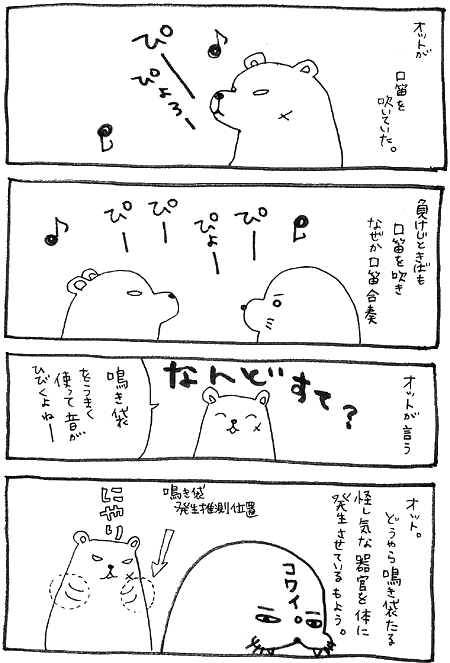 オットが
口笛を
吹いていた。
ぴー
ぴょろー
負けじときばも
口笛を吹き
なぜか口笛合奏
ぴー
ぴょー
ぴー
ぴー
オットが言う
なんどすて?
鳴き袋
をうまく
使って音が
ひびくよねー
オット。
どうやら鳴き袋たる
怪し気な器官を体に
発生させているもよう。
コワイ。
鳴き袋
発生推測位置
にやり